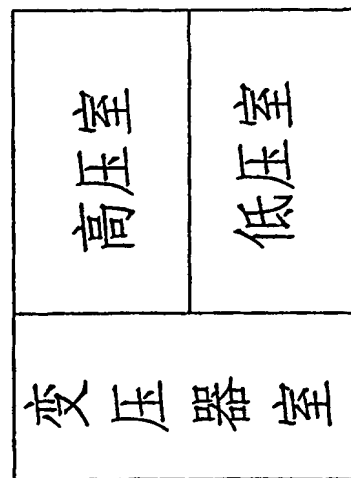 高压室
低压室
变压器室